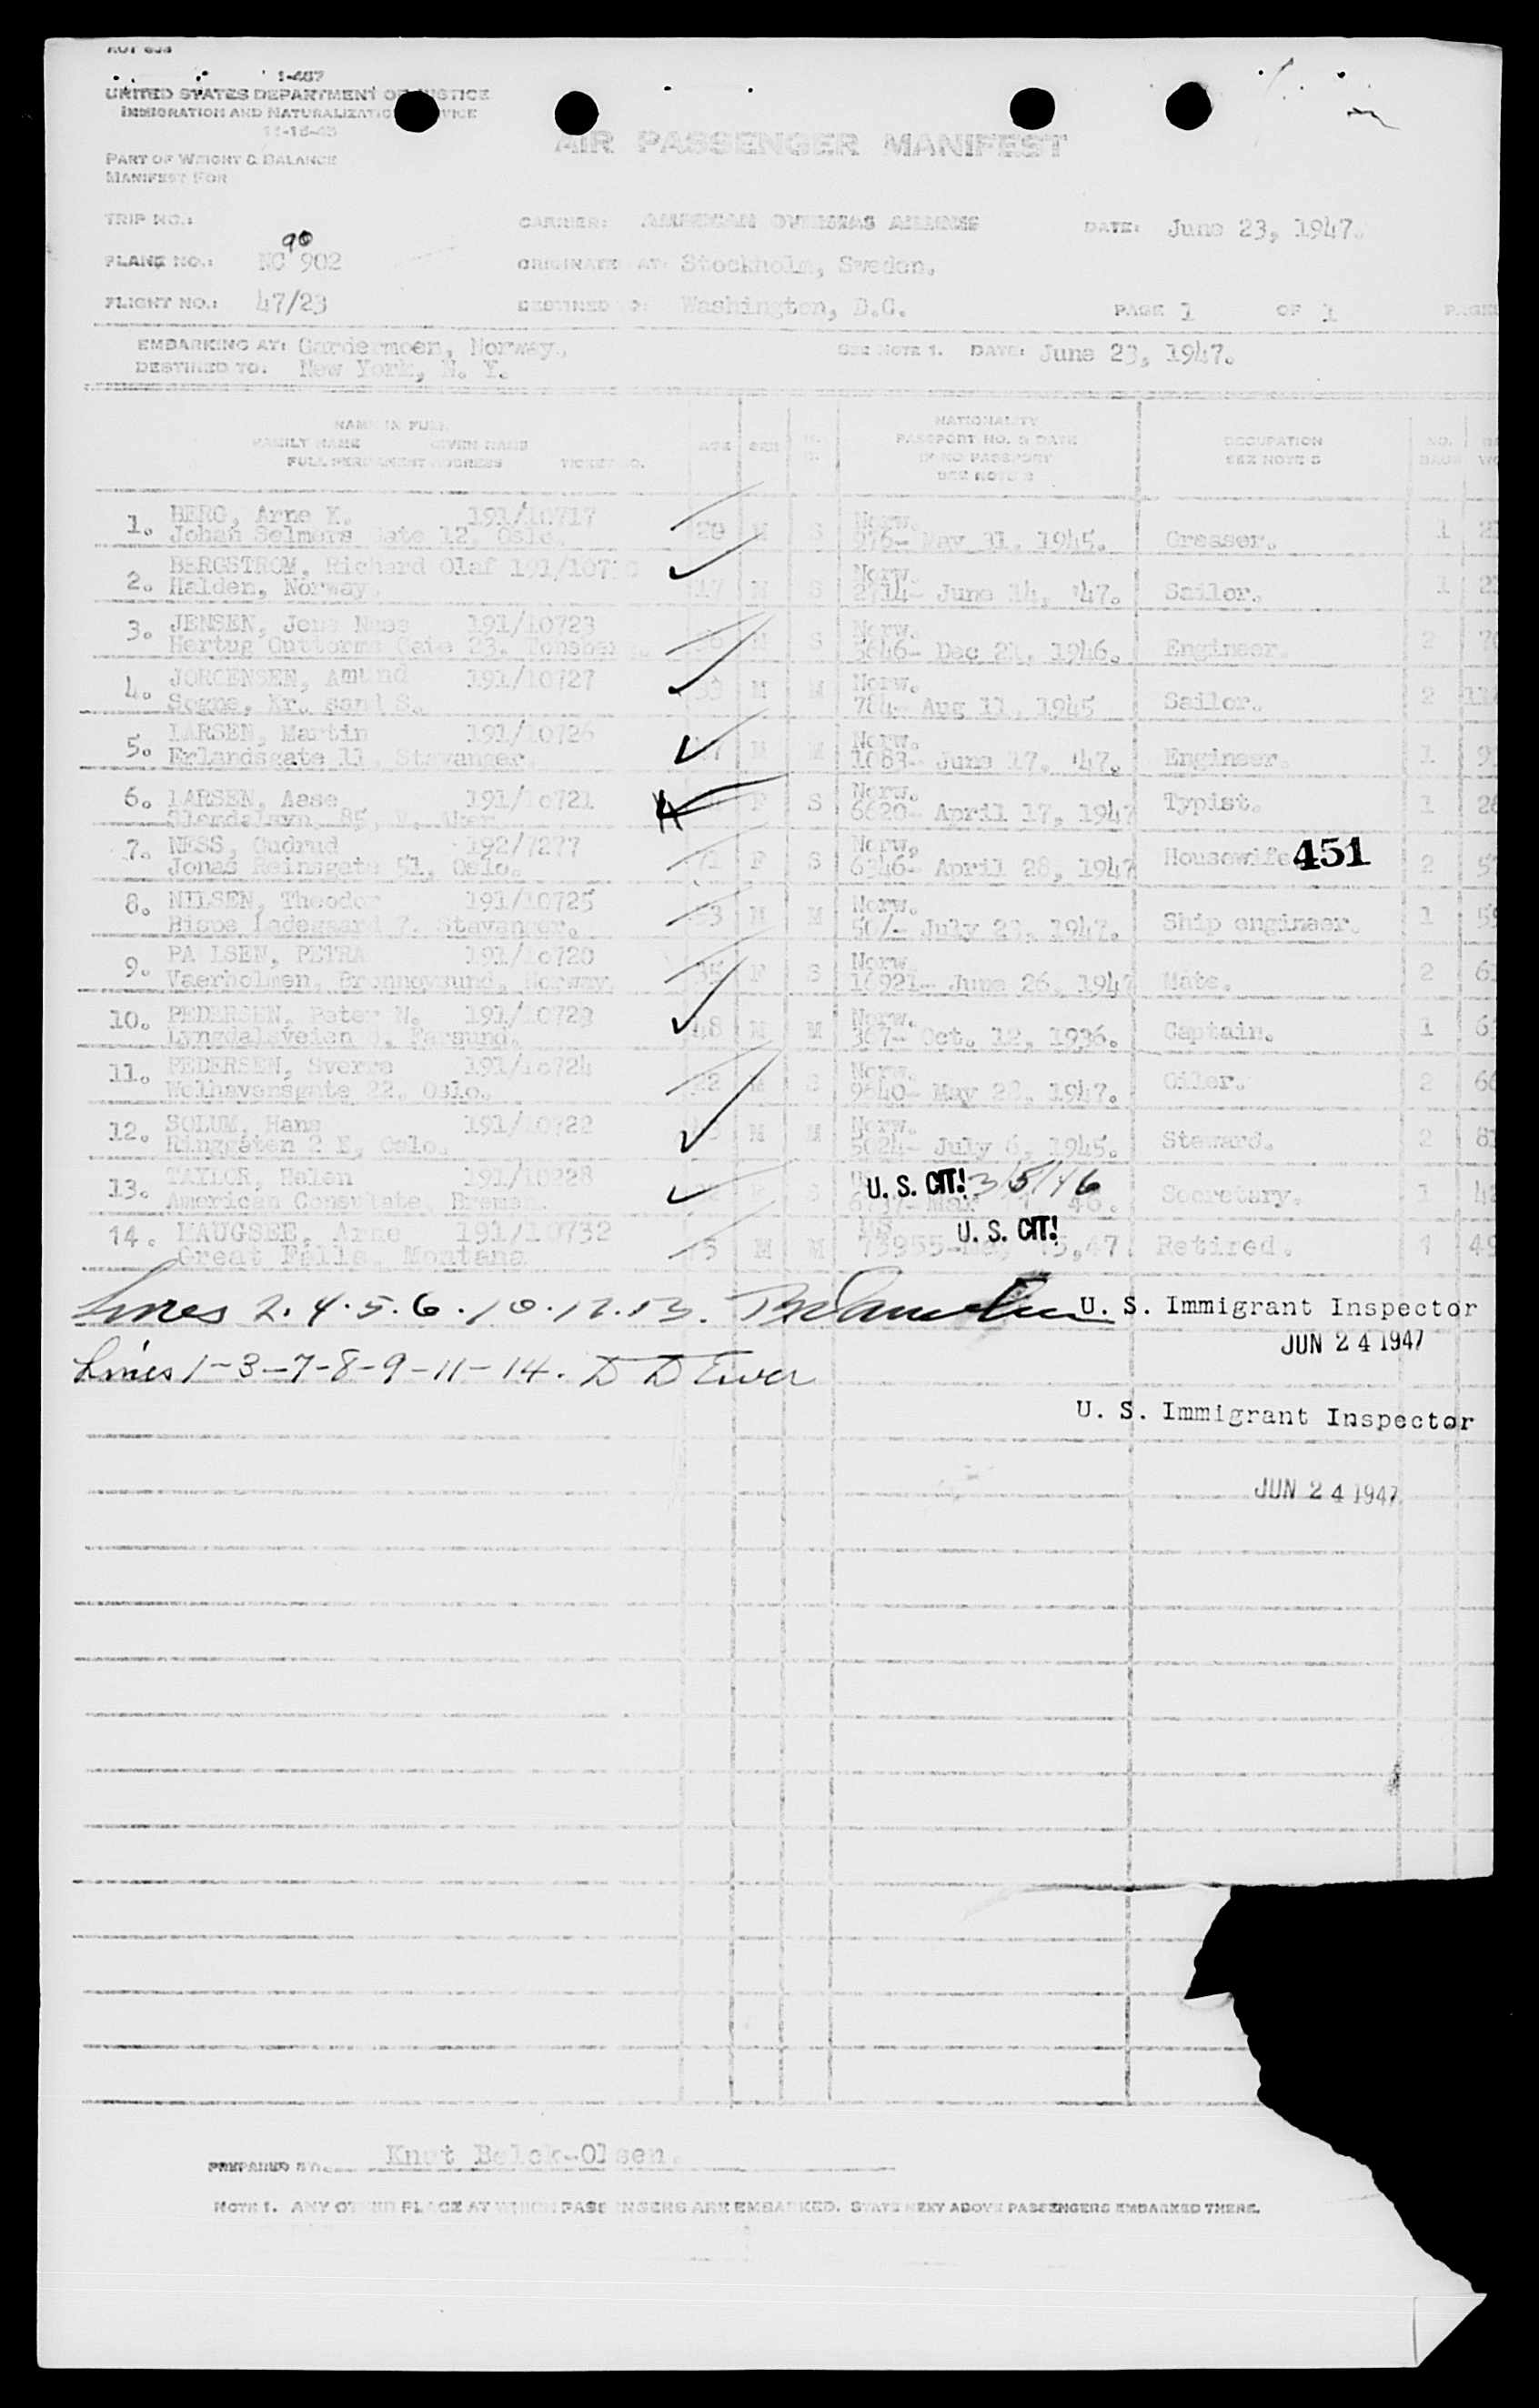 1-487
UNITED STATES DEPARTMENT OF JUSTICE
IMMIGRATION AND NATURALIZATION SERVICE
AIR PASSENGER MANIFEST
PART OF WEIGHT & BALANCE
MANIFEST FOR
TRIP NO.: CARRIER: AMERICAN OVERSEAS AIRLINES DATE: June 23, 1947.
90
PLANE NO.: NC 902 ORIGINATE AT: Stockholm, Sweden.
FLIGHT NO.: 47/23 DESTINED TO: Washington, D.C. PAGE 1 OF 1 PAGES
EMBARKING AT: Gardermoen, Norway. SEE NOTE 1. DATE: June 23, 1947.
DESTINED TO: New York, N. Y.
NAME IN FULL
FAMILY NAME GIVEN NAME
FULL PERMANENT ADDRESS TICKET NO.
AGE SEX
NATIONALITY
PASSPORT NO. & DATE
IF NO PASSPORT
SEE NOTE 2
OCCUPATION
SEE NOTE 2
NO.
BAGS
1. BERG, Arne K. 191/10717 M S Norw.
Johan Selmers Gate 12, Oslo. 976- May 31, 1945. Greaser. 1
2. BERGSTROM, Richard Olaf 17 M S Norw.
Halden, Norway. 2714- June 14, '47. Sailor. 1
3. JENSEN, Jens 191/10723 M S Norw.
Hertug Guttorms Gate 23. Tonsberg. 3646- Dec 1946. Engineer. 2
4. JORGENSEN, Amund 191/10727 M M Norw.
Sogne, Kr. sand S. 784- Aug 11, 1945 Sailor. 2
5. LARSEN, Martin M M Norw.
Erlandsgate 11, Stavanger. 1683- June 17, '47. Engineer. 1
6. LARSEN, Aase 191/10721 F S Norw.
6620- April 17, 1947 Typist. 1
7. NESS, Gudrud 192/7277 71 F S Norw.
Jonas Reinsgate 51, Oslo. 6346- April 28, 1947 Housewife 451 2
8. NILSEN, Theodor 191/10725 M M Norw.
Stavanger. July 1947. Ship engineer. 1
9. PETRA 191/10720 35 F S Norw.
Vaerholmen, Bronnoysund, Norway. 16921- June 26, 1947 Mate. 2
10. PEDERSEN, Peter N. 48 M M Norw.
Lyngdalsveien Farsund. 367- Oct. 12, 1936. Captain. 1
11. PEDERSEN, Sverre 191/10724 M S Norw.
Welhavensgate 22, Oslo. 9640- May 28, 1947. Oiler. 2
12. SOLUM, Hans 191/10722 M M Norw.
Oslo. 5024- July 6, 1945. Steward. 2
13. TAYLOR, Helen 191/10228 U. S. CIT! 3/5/46
American Consulate, Bremen. Secretary. 1
14. HAUGSEE, Arne 191/10732 M M U. S. CIT!
Great Falls, Montana Retired. 1
Lines 2.4.5.6.10.12.13. U. S. Immigrant Inspector
JUN 24 1947
Lines 1-3-7-8-9-11-14. D D Ewer
U. S. Immigrant Inspector
JUN 24 1947
PREPARED BY: Knut Belck-Olsen.
NOTE 1. ANY OTHER PLACE AT WHICH PASSENGERS ARE EMBARKED. STATE NEXT ABOVE PASSENGERS EMBARKED THERE.